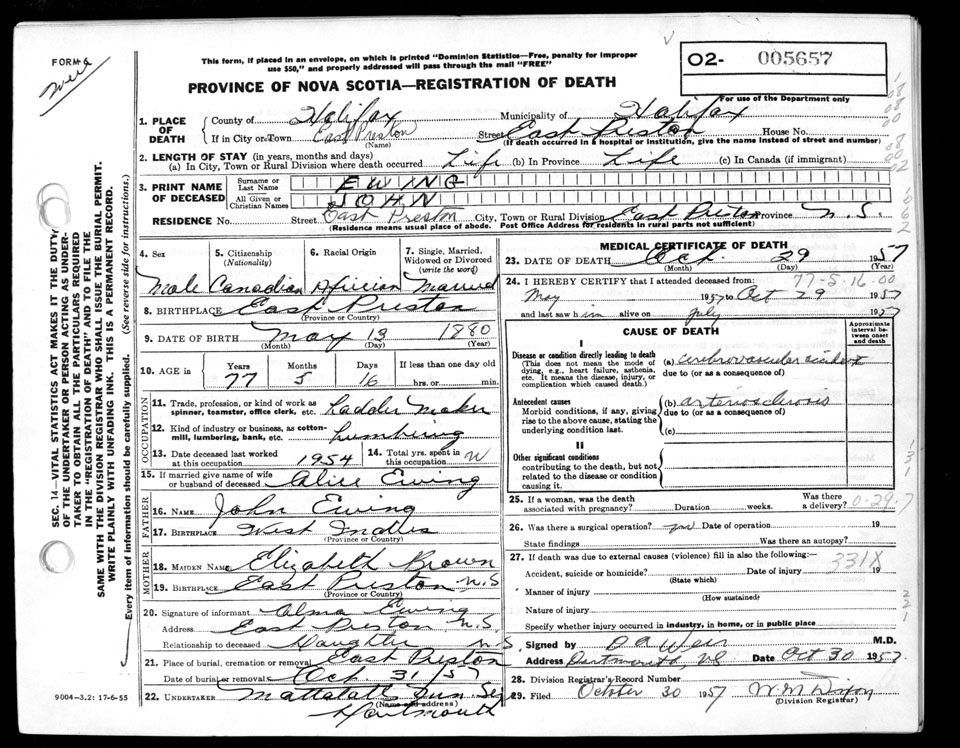 FORM 6
This form, if placed in an envelope, on which is printed "Dominion Statistics—Free, penalty for improper
use $50," and properly addressed will pass through the mail "FREE"
02- 005657
PROVINCE OF NOVA SCOTIA—REGISTRATION OF DEATH
For use of the Department only
1. PLACE OF DEATH
County of Halifax Municipality of Halifax
If in City or Town East Preston Street East Preston House No.
(Name) (If death occurred in a hospital or institution, give the name instead of street and number)
2. LENGTH OF STAY (in years, months and days)
(a) In City, Town or Rural Division where death occurred Life (b) In Province Life (c) In Canada (if immigrant)
3. PRINT NAME OF DECEASED
Surname or Last Name EWING
All Given or Christian Names JOHN
RESIDENCE No. Street East Preston City, Town or Rural Division East Preston Province N.S.
(Residence means usual place of abode. Post Office Address for residents in rural parts not sufficient)
4. Sex 5. Citizenship (Nationality) 6. Racial Origin 7. Single, Married, Widowed or Divorced (write the word)
Male Canadian African Married
8. BIRTHPLACE East Preston
(Province or Country)
9. DATE OF BIRTH May 13 1880
(Month) (Day) (Year)
10. AGE in Years Months Days If less than one day
77 5 16 hrs. or min.
OCCUPATION
11. Trade, profession, or kind of work as spinner, teamster, office clerk, etc. Ladder Maker
12. Kind of industry or business, as cotton-mill, lumbering, bank, etc. Lumbering
13. Date deceased last worked at this occupation 1954 14. Total yrs. spent in this occupation
15. If married give name of wife or husband of deceased Alice Ewing
FATHER
16. NAME John Ewing
17. BIRTHPLACE West Indies
(Province or Country)
MOTHER
18. MAIDEN NAME Elizabeth Brown
19. BIRTHPLACE East Preston N.S
(Province or Country)
20. Signature of informant Alma Ewing
Address East Preston N.S.
Relationship to deceased Daughter N.S.
21. Place of burial, cremation or removal East Preston
Date of burial or removal Oct. 31/57
22. UNDERTAKER Mattatall
(Name and address)
Dartmouth
9004-3.2: 17-6-55
MEDICAL CERTIFICATE OF DEATH
23. DATE OF DEATH Oct. 29 1957
(Month) (Day) (Year)
77-5-16-00
24. I HEREBY CERTIFY that I attended deceased from:
May 1957 to Oct 29 1957
and last saw him alive on July 1957
CAUSE OF DEATH
Approximate interval between onset and death
I
Disease or condition directly leading to death
(This does not mean the mode of dying, e.g., heart failure, asthenia, etc. It means the disease, injury, or complication which caused death.)
(a) cerebrovascular accident
due to (or as a consequence of)
Antecedent causes
Morbid conditions, if any, giving rise to the above cause, stating the underlying condition last.
(b) arteriosclerosis
due to (or as a consequence of)
(c)
II
Other significant conditions
contributing to the death, but not related to the disease or condition causing it.
25. If a woman, was the death associated with pregnancy? Duration weeks. Was there a delivery?
0-29-7
26. Was there a surgical operation? no Date of operation 19
State findings Was there an autopsy?
27. If death was due to external causes (violence) fill in also the following:—
331X
Accident, suicide or homicide? Date of injury 19
(State which)
Manner of injury
(How sustained)
Nature of injury
Specify whether injury occurred in industry, in home, or in public place
Signed by D A Weir M.D.
Address Dartmouth NS Date Oct 30 1957.
28. Division Registrar's Record Number
29. Filed October 30 1957 W. M. Dixon
(Division Registrar)
SEC. 14—VITAL STATISTICS ACT MAKES IT THE DUTY
OF THE UNDERTAKER OR PERSON ACTING AS UNDER-
TAKER TO OBTAIN ALL THE PARTICULARS REQUIRED
IN THE "REGISTRATION OF DEATH" AND TO FILE THE
SAME WITH THE DIVISION REGISTRAR WHO SHALL ISSUE THE BURIAL PERMIT.
WRITE PLAINLY WITH UNFADING INK. THIS IS A PERMANENT RECORD.
Every item of information should be carefully supplied. (See reverse side for instructions.)